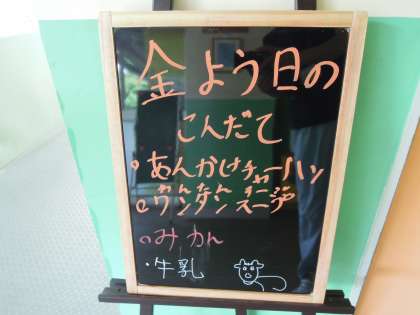 金よう日の
こんだて
・あんかけチャーハン
・ワンタンスープ
・みかん
・牛乳